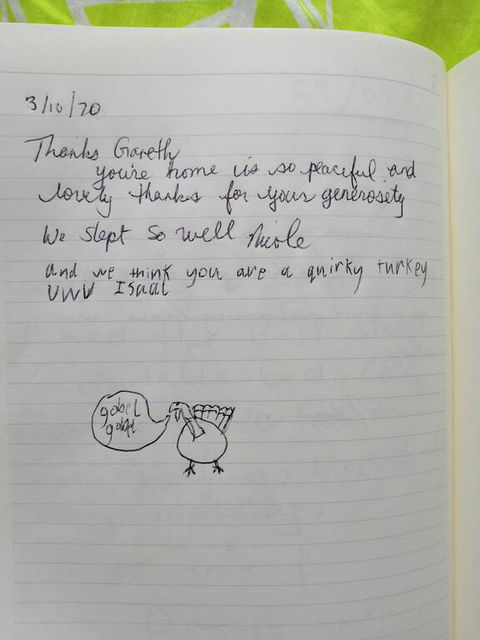 3/10/20
Thanks Gareth
you're home is so peaceful and
lovely thanks for your generosity
We slept so well Nicole
and we think you are a quirky turkey
UWU Isaac
gobel
gobel